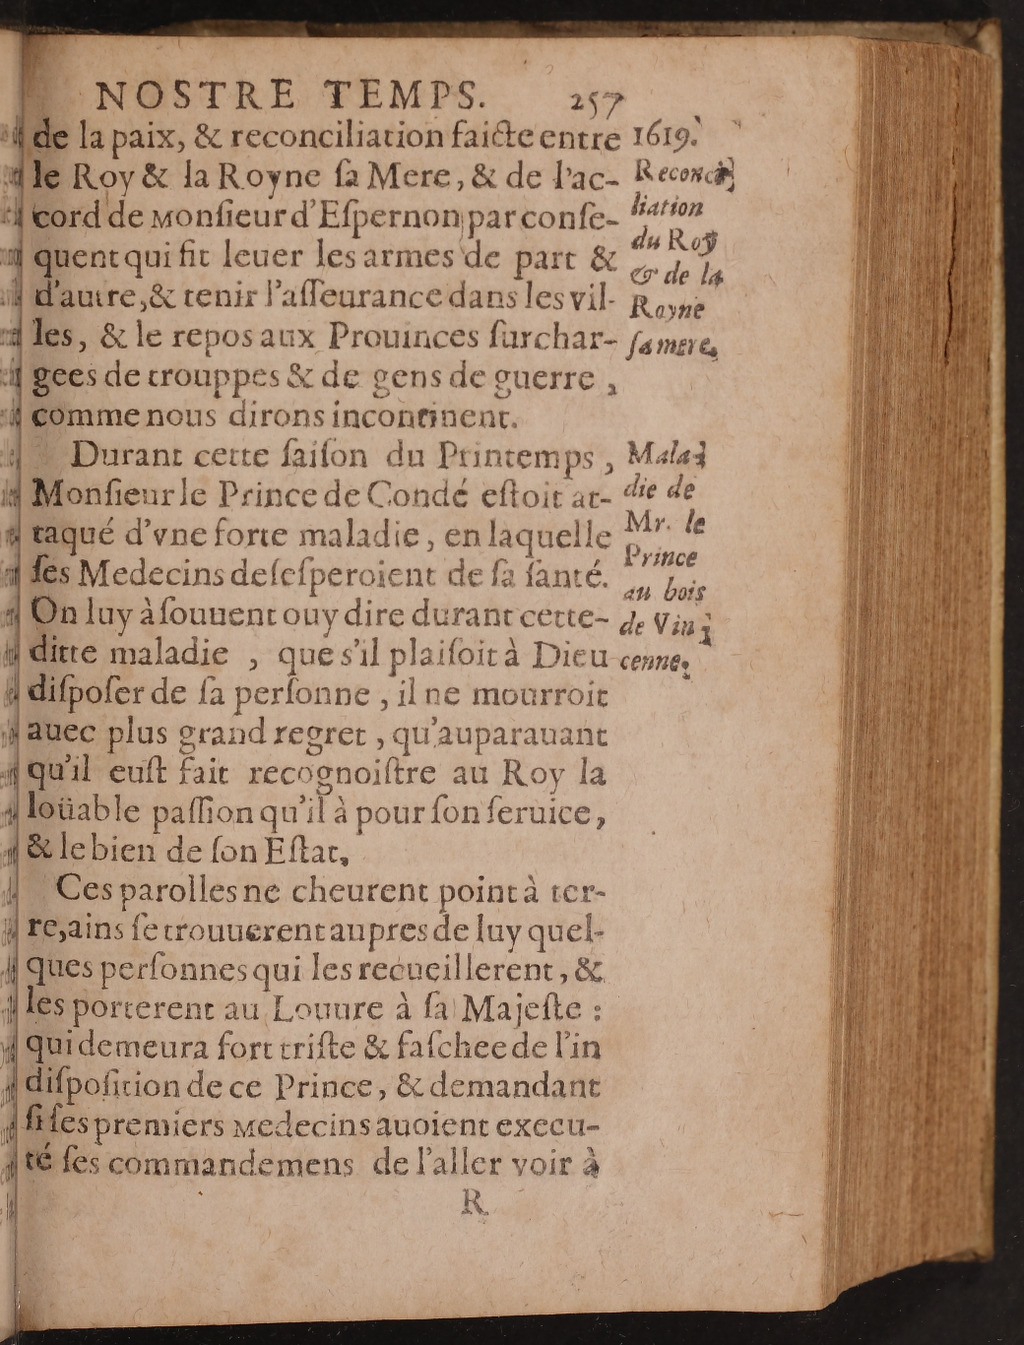 NOSTRE TEMPS. 257
de la paix, & reconciliation faicte entre
le Roy & la Royne ſa Mere, & de l'ac-
cord de Monſieur d'Eſpernon par conſe-
quent qui fit leuer les armes de part &
d'autre, & tenir l'aſſeurance dans les vil-
les, & le repos aux Prouinces ſurchar-
gees de trouppes & de gens de guerre,
comme nous dirons incontinent.
Durant cette ſaiſon du Printemps,
Monſieur le Prince de Condé eſtoit at-
taqué d'vne forte maladie, en laquelle
ſes Medecins deſeſperoient de ſa ſanté.
On luy à ſouuent ouy dire durant cette-
ditte maladie, que s'il plaiſoit à Dieu
diſpoſer de ſa perſonne, il ne mourroit
auec plus grand regret, qu'auparauant
qu'il euſt fait recognoiſtre au Roy la
loüable paſſion qu'il à pour ſon ſeruice,
& le bien de ſon Eſtat,
Ces parolles ne cheurent point à ter-
re, ains ſe trouuerent aupres de luy quel-
ques perſonnes qui les recueillerent, &
les porterent au Louure à ſa Majeſte :
qui demeura fort triſte & faſchee de l'in
diſpoſition de ce Prince, & demandant
ſi ſes premiers Medecins auoient execu-
té ſes commandemens de l'aller voir à
R
1619.
Reconci
liation
du Roy
& de la
Royne
ſa mere,
Mala-
die de
Mr. le
Prince
au bois
de Vin-
cennes